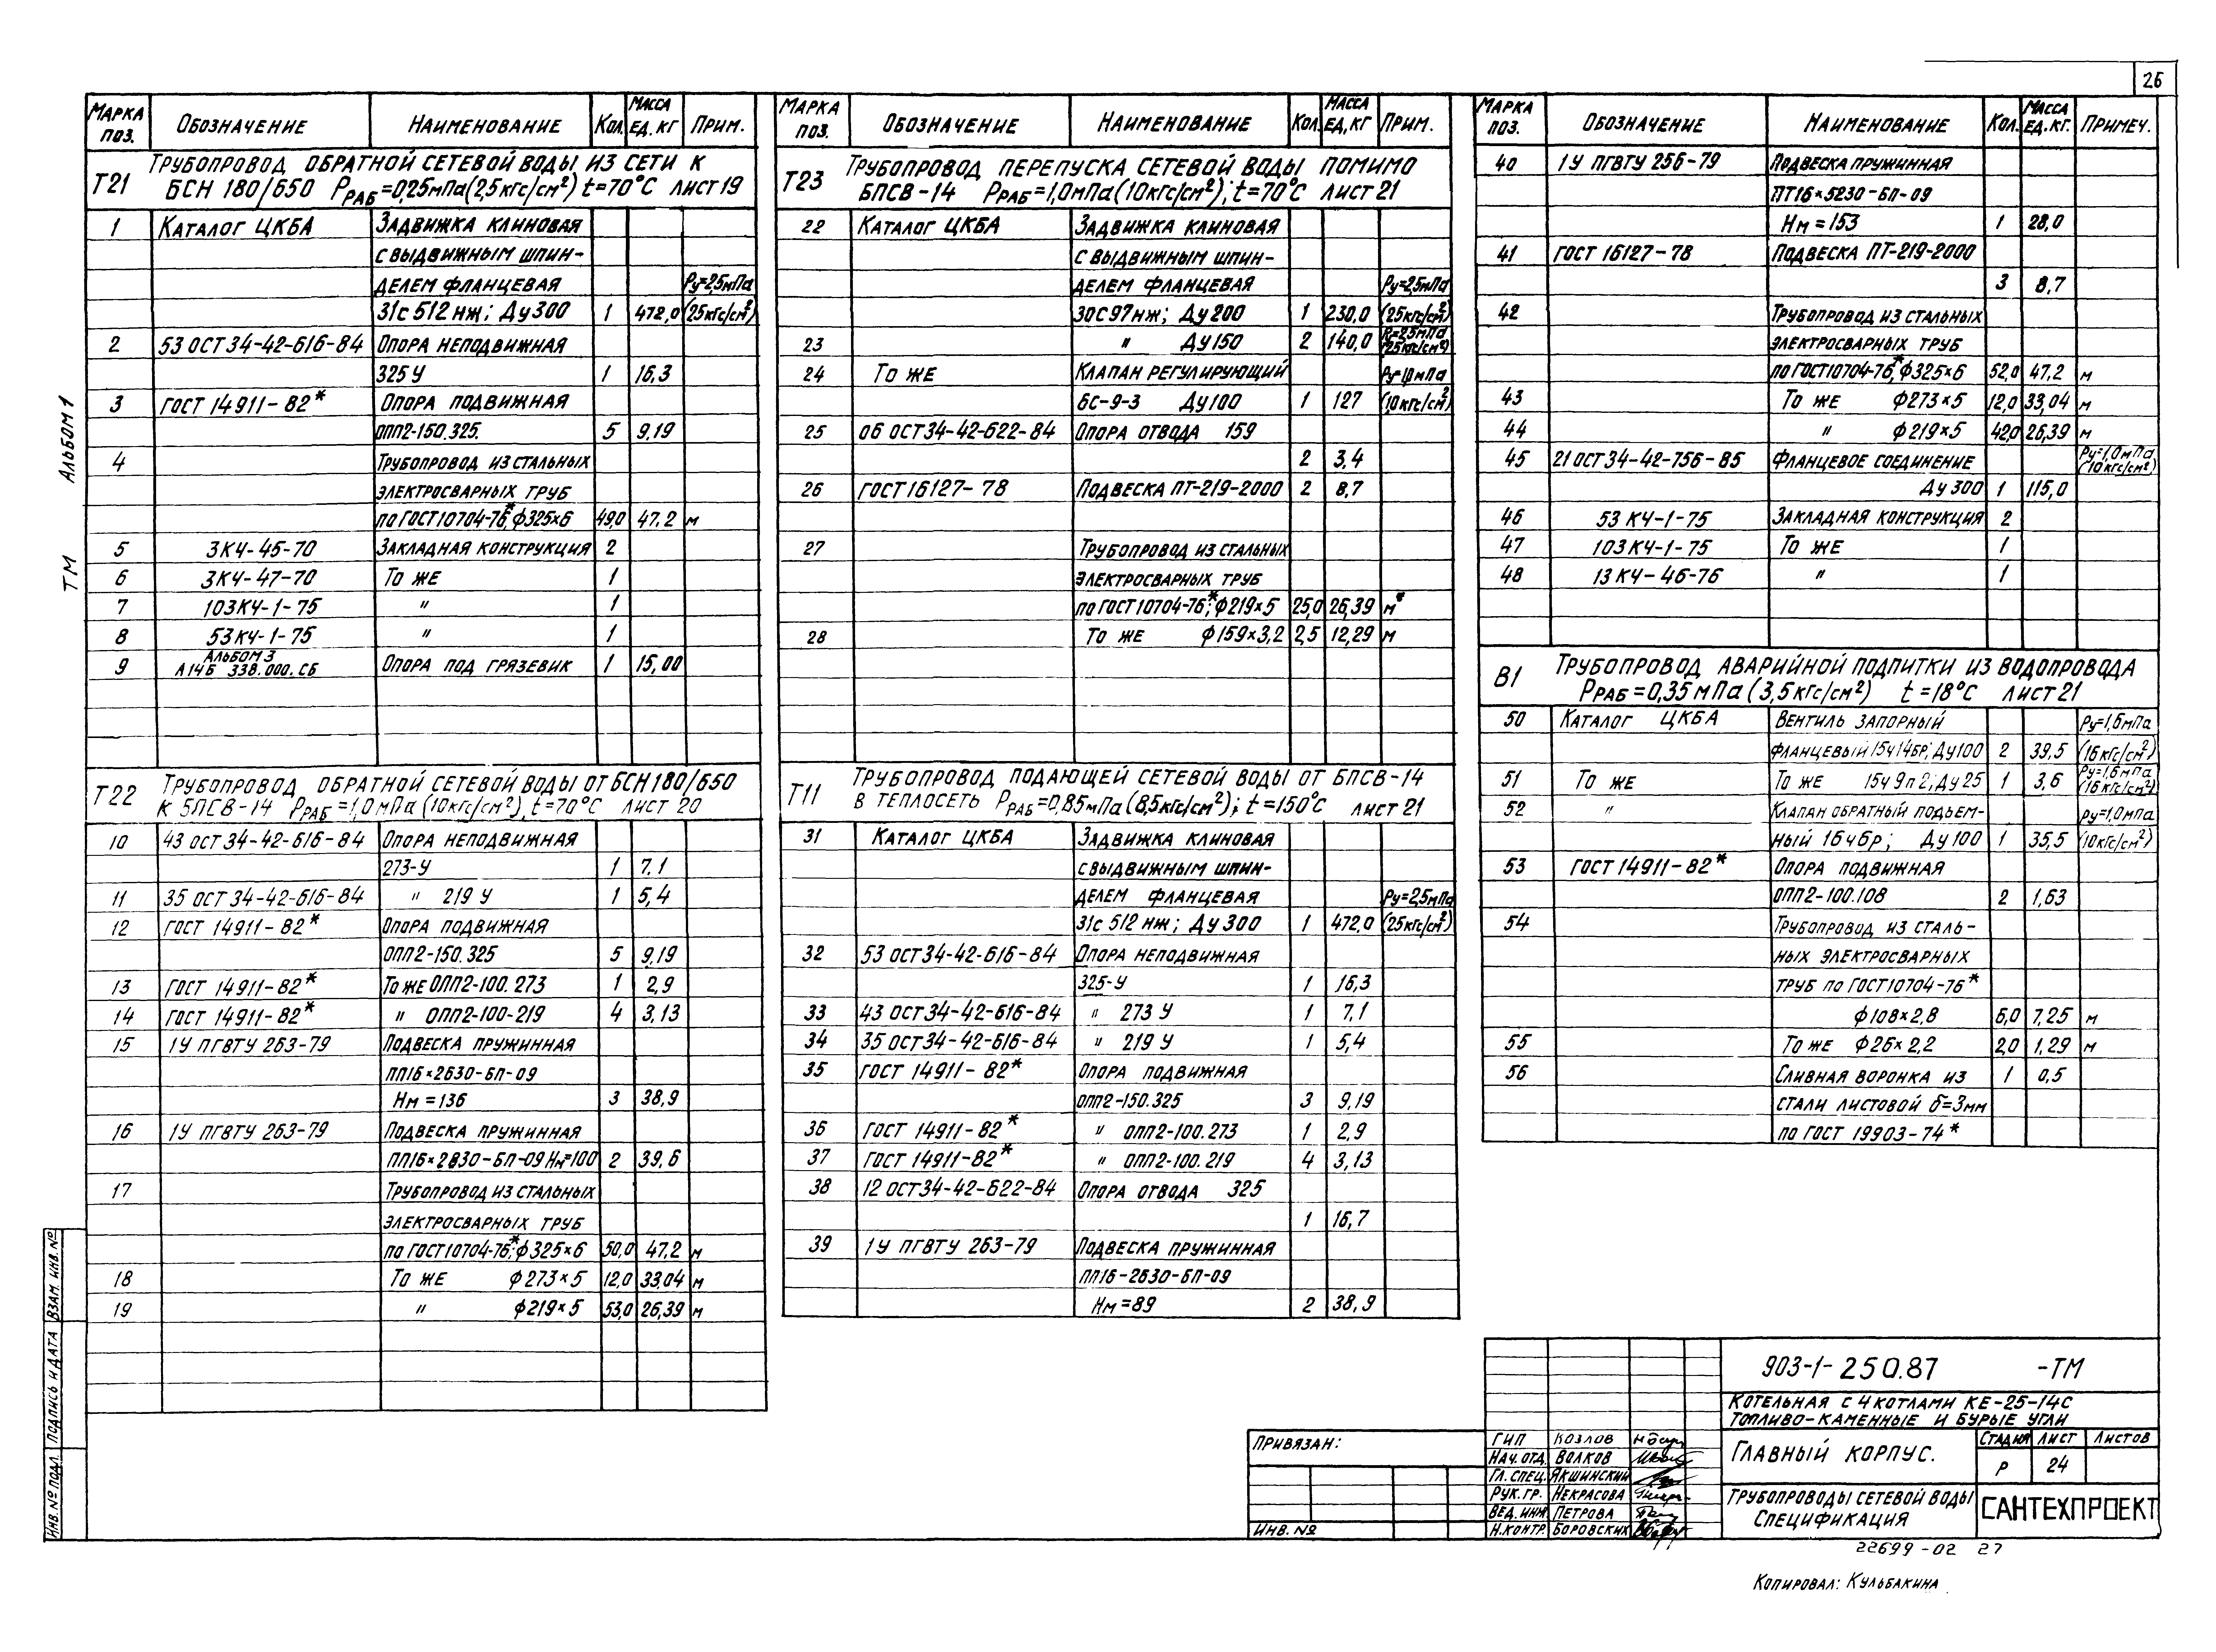 26
Альбом 1
ТМ
Марка поз. Обозначение Наименование Кол. Масса ед. кг Прим.
Т21 Трубопровод обратной сетевой воды из сети к
БСН 180/650 Рраб=0,25мПа(2,5кгс/см²) t=70°С лист 19
1 Каталог ЦКБА Задвижка клиновая
с выдвижным шпин-
делем фланцевая Ру=2,5мПа
31с 512 нж; Ду 300 1 472,0 (25кгс/см²)
2 53 ОСТ 34-42-616-84 Опора неподвижная
325 У 1 16,3
3 ГОСТ 14911-82* Опора подвижная
ОПП2-150.325. 5 9,19
4 Трубопровод из стальных
электросварных труб
по ГОСТ 10704-76*, ф325х6 49,0 47,2 м
5 3КЧ-45-70 Закладная конструкция 2
6 3КЧ-47-70 То же 1
7 103КЧ-1-75 " 1
8 53КЧ-1-75 " 1
9 Альбом 3
А14Б 338.000.СБ Опора под грязевик 1 15,00
Т22 Трубопровод обратной сетевой воды от БСН 180/650
к БПСВ-14 Рраб=1,0мПа (10кгс/см²), t=70°С лист 20
10 43 ОСТ 34-42-616-84 Опора неподвижная
273-У 1 7,1
11 35 ОСТ 34-42-616-84 " 219 У 1 5,4
12 ГОСТ 14911-82* Опора подвижная
ОПП2-150.325 5 9,19
13 ГОСТ 14911-82* То же ОПП2-100.273 1 2,9
14 ГОСТ 14911-82* " ОПП2-100-219 4 3,13
15 1У ПГВТУ 263-79 Подвеска пружинная
ПП16×2630-БП-09
Нм=136 3 38,9
16 1У ПГВТУ 263-79 Подвеска пружинная
ПП16×2830-БП-09 Нм=100 2 39,6
17 Трубопровод из стальных
электросварных труб
по ГОСТ 10704-76*; ф325×6 50,0 47,2 м
18 То же ф273×5 12,0 33,04 м
19 " ф219×5 53,0 26,39 м
Марка поз. Обозначение Наименование Кол. Масса ед, кг Прим.
Т23 Трубопровод перепуска сетевой воды помимо
БПСВ-14 Рраб=1,0мПа(10кгс/см²); t=70°С лист 21
22 Каталог ЦКБА Задвижка клиновая
с выдвижным шпин-
делем фланцевая Ру=2,5мПа
30с97нж; Ду 200 1 230,0 (25кгс/см²)
23 " Ду 150 2 140,0 Ру=2,5мПа (25кгс/см²)
24 То же Клапан регулирующий Ру=1,0мПа
6с-9-3 Ду 100 1 127 (10кгс/см²)
25 06 ОСТ 34-42-622-84 Опора отвода 159
2 3,4
26 ГОСТ 16127-78 Подвеска ПТ-219-2000 2 8,7
27 Трубопровод из стальных
электросварных труб
по ГОСТ 10704-76*; ф219×5 25,0 26,39 м
28 То же ф159×3,2 2,5 12,29 м
Т11 Трубопровод подающей сетевой воды от БПСВ-14
в теплосеть Рраб=0,85мПа (8,5кгс/см²); t=150°С лист 21
31 Каталог ЦКБА Задвижка клиновая
с выдвижным шпин-
делем фланцевая Ру=2,5мПа
31с 512 нж; Ду 300 1 472,0 (25кгс/см²)
32 53 ОСТ 34-42-616-84 Опора неподвижная
325-У 1 16,3
33 43 ОСТ 34-42-616-84 " 273 У 1 7,1
34 35 ОСТ 34-42-616-84 " 219 У 1 5,4
35 ГОСТ 14911-82* Опора подвижная
ОПП2-150.325 3 9,19
36 ГОСТ 14911-82* " ОПП2-100.273 1 2,9
37 ГОСТ 14911-82* " ОПП2-100.219 4 3,13
38 12 ОСТ 34-42-622-84 Опора отвода 325
1 16,7
39 1У ПГВТУ 263-79 Подвеска пружинная
ПП16-2630-БП-09
Нм=89 2 38,9
Марка поз. Обозначение Наименование Кол. Масса ед. кг. Примеч.
40 1У ПГВТУ 256-79 Подвеска пружинная
ПТ16×5230-БП-09
Нм=153 1 28,0
41 ГОСТ 16127-78 Подвеска ПТ-219-2000
3 8,7
42 Трубопровод из стальных
электросварных труб
по ГОСТ 10704-76*, ф325×6 52,0 47,2 м
43 То же ф273×5 12,0 33,04 м
44 " ф219×5 42,0 26,39 м
45 21 ОСТ 34-42-756-85 Фланцевое соединение Ру=1,0мПа (10кгс/см²)
Ду 300 1 115,0
46 53 КЧ-1-75 Закладная конструкция 2
47 103КЧ-1-75 То же 1
48 13 КЧ-46-76 " 1
В1 Трубопровод аварийной подпитки из водопровода
Рраб=0,35мПа (3,5кгс/см²) t=18°С лист 21
50 Каталог ЦКБА Вентиль запорный Ру=1,6мПа
фланцевый 15ч14бр; Ду100 2 39,5 (16кгс/см²)
51 То же То же 15ч9п2; Ду 25 1 3,6 Ру=1,6мПа (16кгс/см²)
52 " Клапан обратный подъем- Ру=1,0мПа
ный 16ч6р; Ду 100 1 35,5 (10кгс/см²)
53 ГОСТ 14911-82* Опора подвижная
ОПП2-100.108 2 1,63
54 Трубопровод из сталь-
ных электросварных
труб по ГОСТ 10704-76*
ф108×2,8 6,0 7,25 м
55 То же ф26×2,2 2,0 1,29 м
56 Сливная воронка из 1 0,5
стали листовой δ=3мм
по ГОСТ 19903-74*
903-1-250.87 -ТМ
Котельная с 4 котлами КЕ-25-14С
Топливо-каменные и бурые угли
Главный корпус.
Стадия Лист Листов
Р 24
Трубопроводы сетевой воды
Спецификация
САНТЕХПРОЕКТ
ГИП Козлов
Нач. отд. Волков
Гл. спец. Якшинский
Рук. гр. Некрасова
Вед. инж Петрова
Н. контр. Боровских
Привязан:
Инв. №
Инв. № подл. Подпись и дата Взам. инв. №
22699-02 27
Копировал: Кульбакина